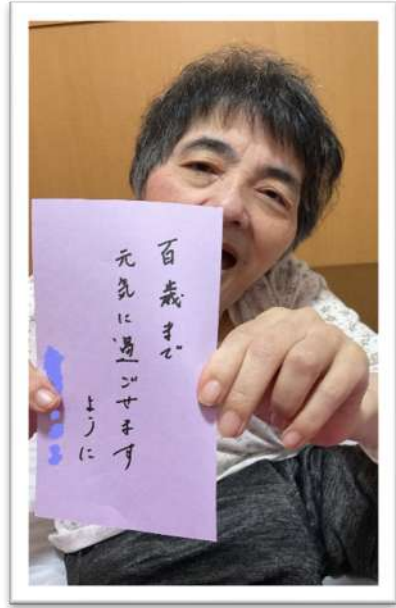 百歳まで
元気に過ごせます
ように